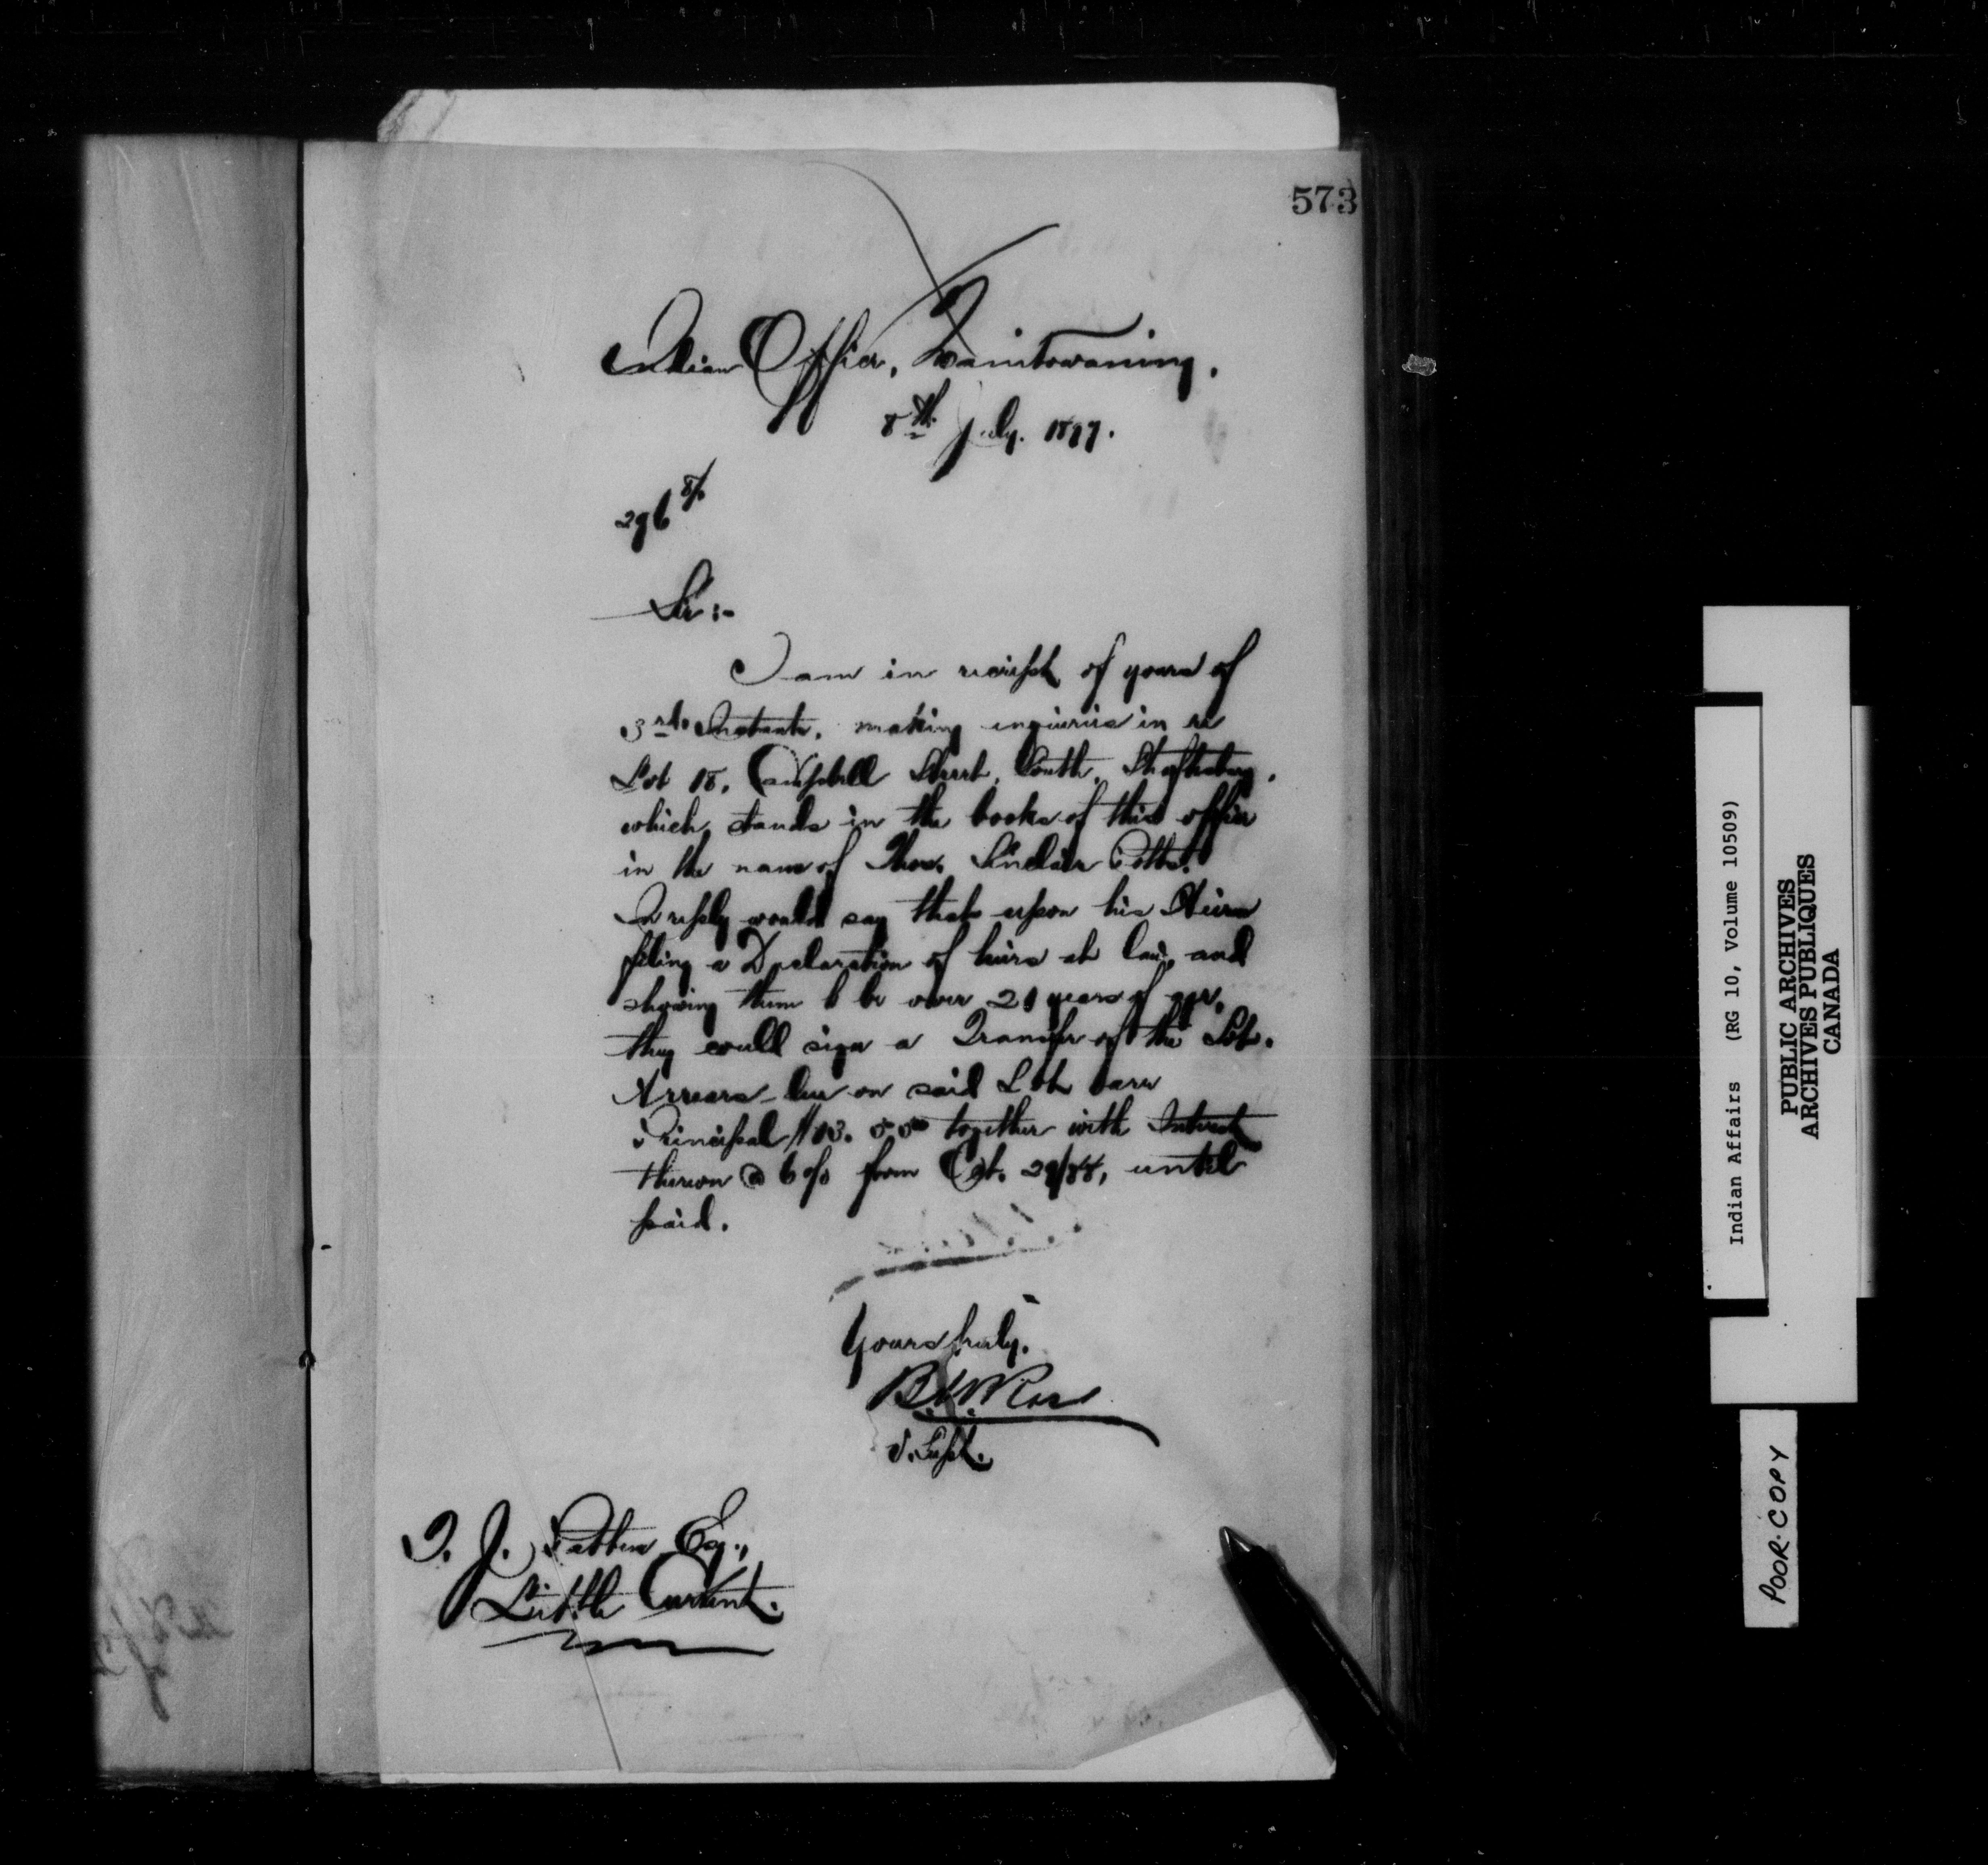 573
Indian Office, Manitowaning,
8th July. 1897.
Sir:-
I am in receipt of yours of
3rd. Instant, making enquiries in re
Lot 18, Campbell Street, South, Shaftesbury,
which stands in the books of this office
in the name of Thos. Sinclair Potts.
In reply would say that upon his Heirs
filing a Declaration of heirs at law, and
showing them to be over 21 years of age,
they could sign a Transfer of the Lot.
Arrears due on said Lot are
Principal together with Interest
thereon @ 6% from Oct. 29/88, until
paid.
Yours truly,
B.W. Ross
V. Supt.
T. J. Patten Esq.,
Little Current.
Indian Affairs (RG 10, Volume 10509)
PUBLIC ARCHIVES
ARCHIVES PUBLIQUES
CANADA
POOR COPY